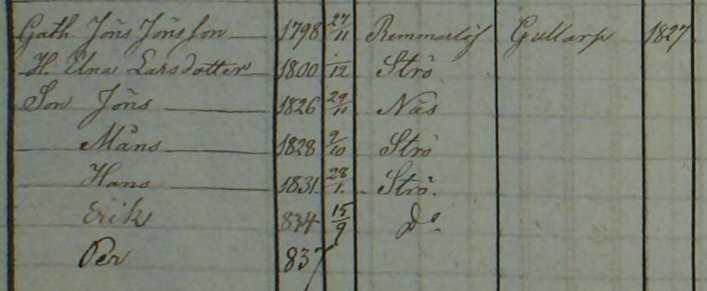 Gath. Jöns Jönsson 1798 27/11 Remmarlöf Gullarp 1827
H. Elna Larsdotter 1800 /12 Strö
Son Jöns 1826 29/11 Näs
Måns 1828 9/10 Strö
Hans 1831 28/1 Strö.
Erik 834 15/9 Do
Per 837